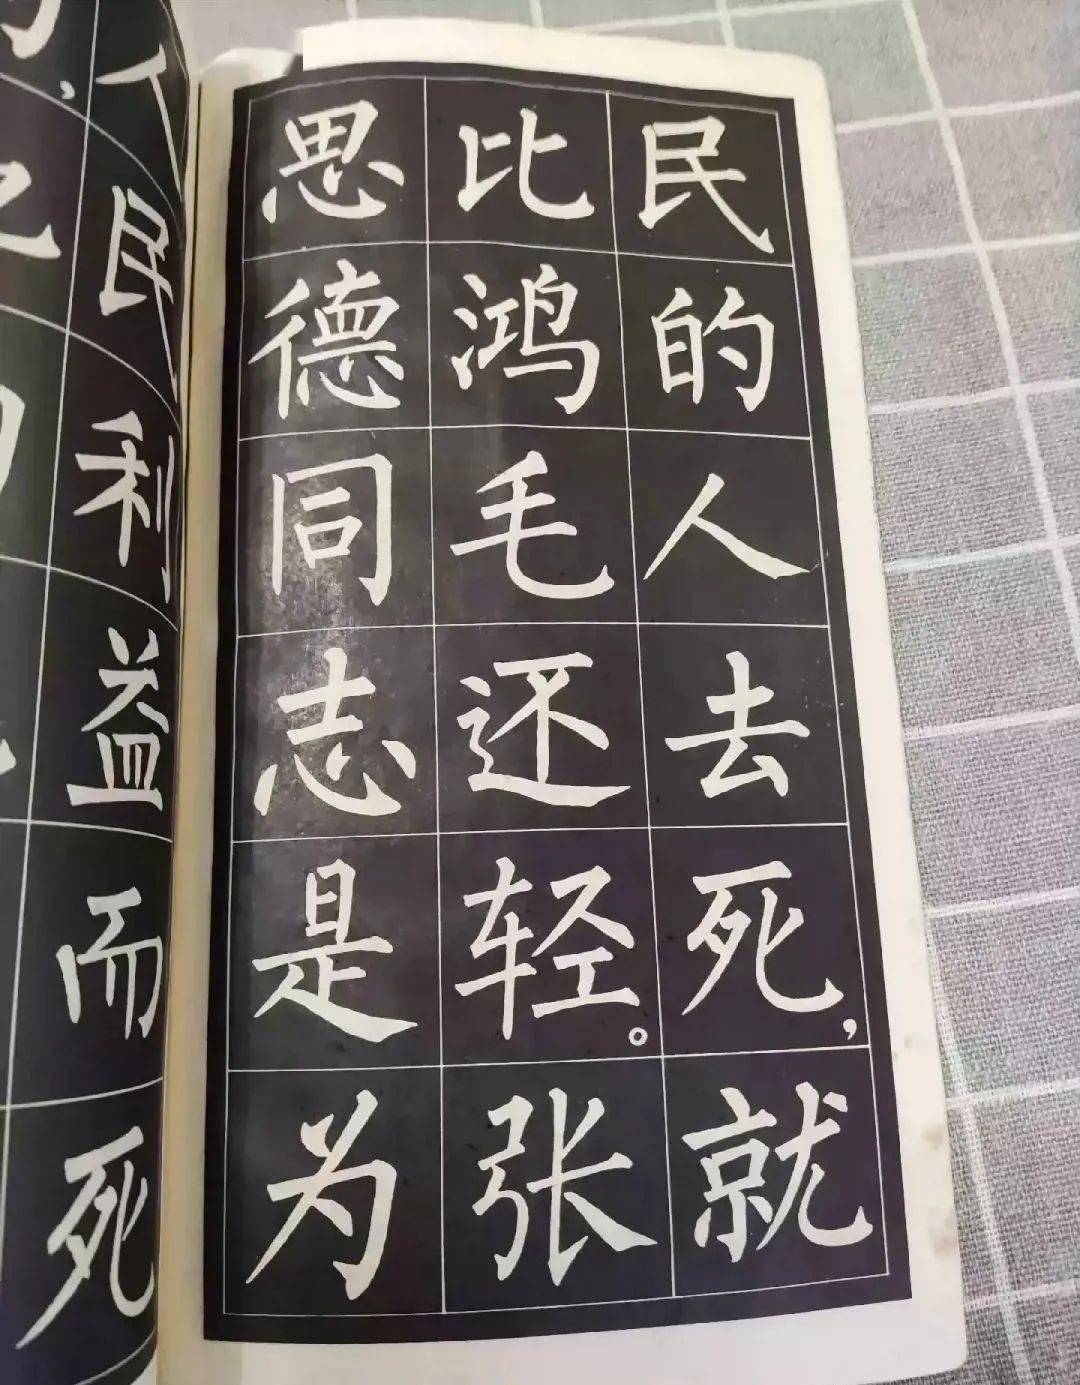 民的人去死，就
比鸿毛还轻。张
思德同志是为
人民利益而死